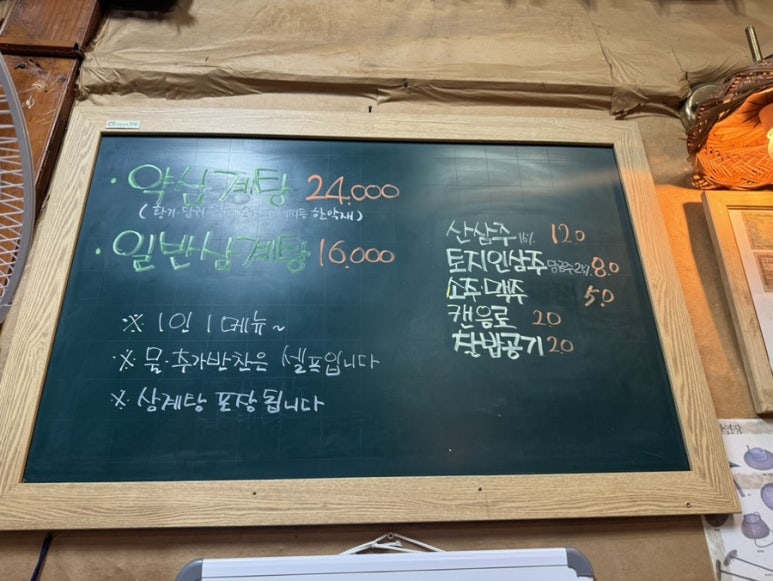 · 약삼계탕 24.000
(황기·당귀 한약재)
· 일반삼계탕 16.000
※ 1인 1메뉴~
※ 물·추가반찬은 셀프입니다
※ 삼계탕 포장됩니다
산삼주 12.0
토지인삼주 8.0
소주·맥주 5.0
캔음료 2.0
찰밥공기 2.0